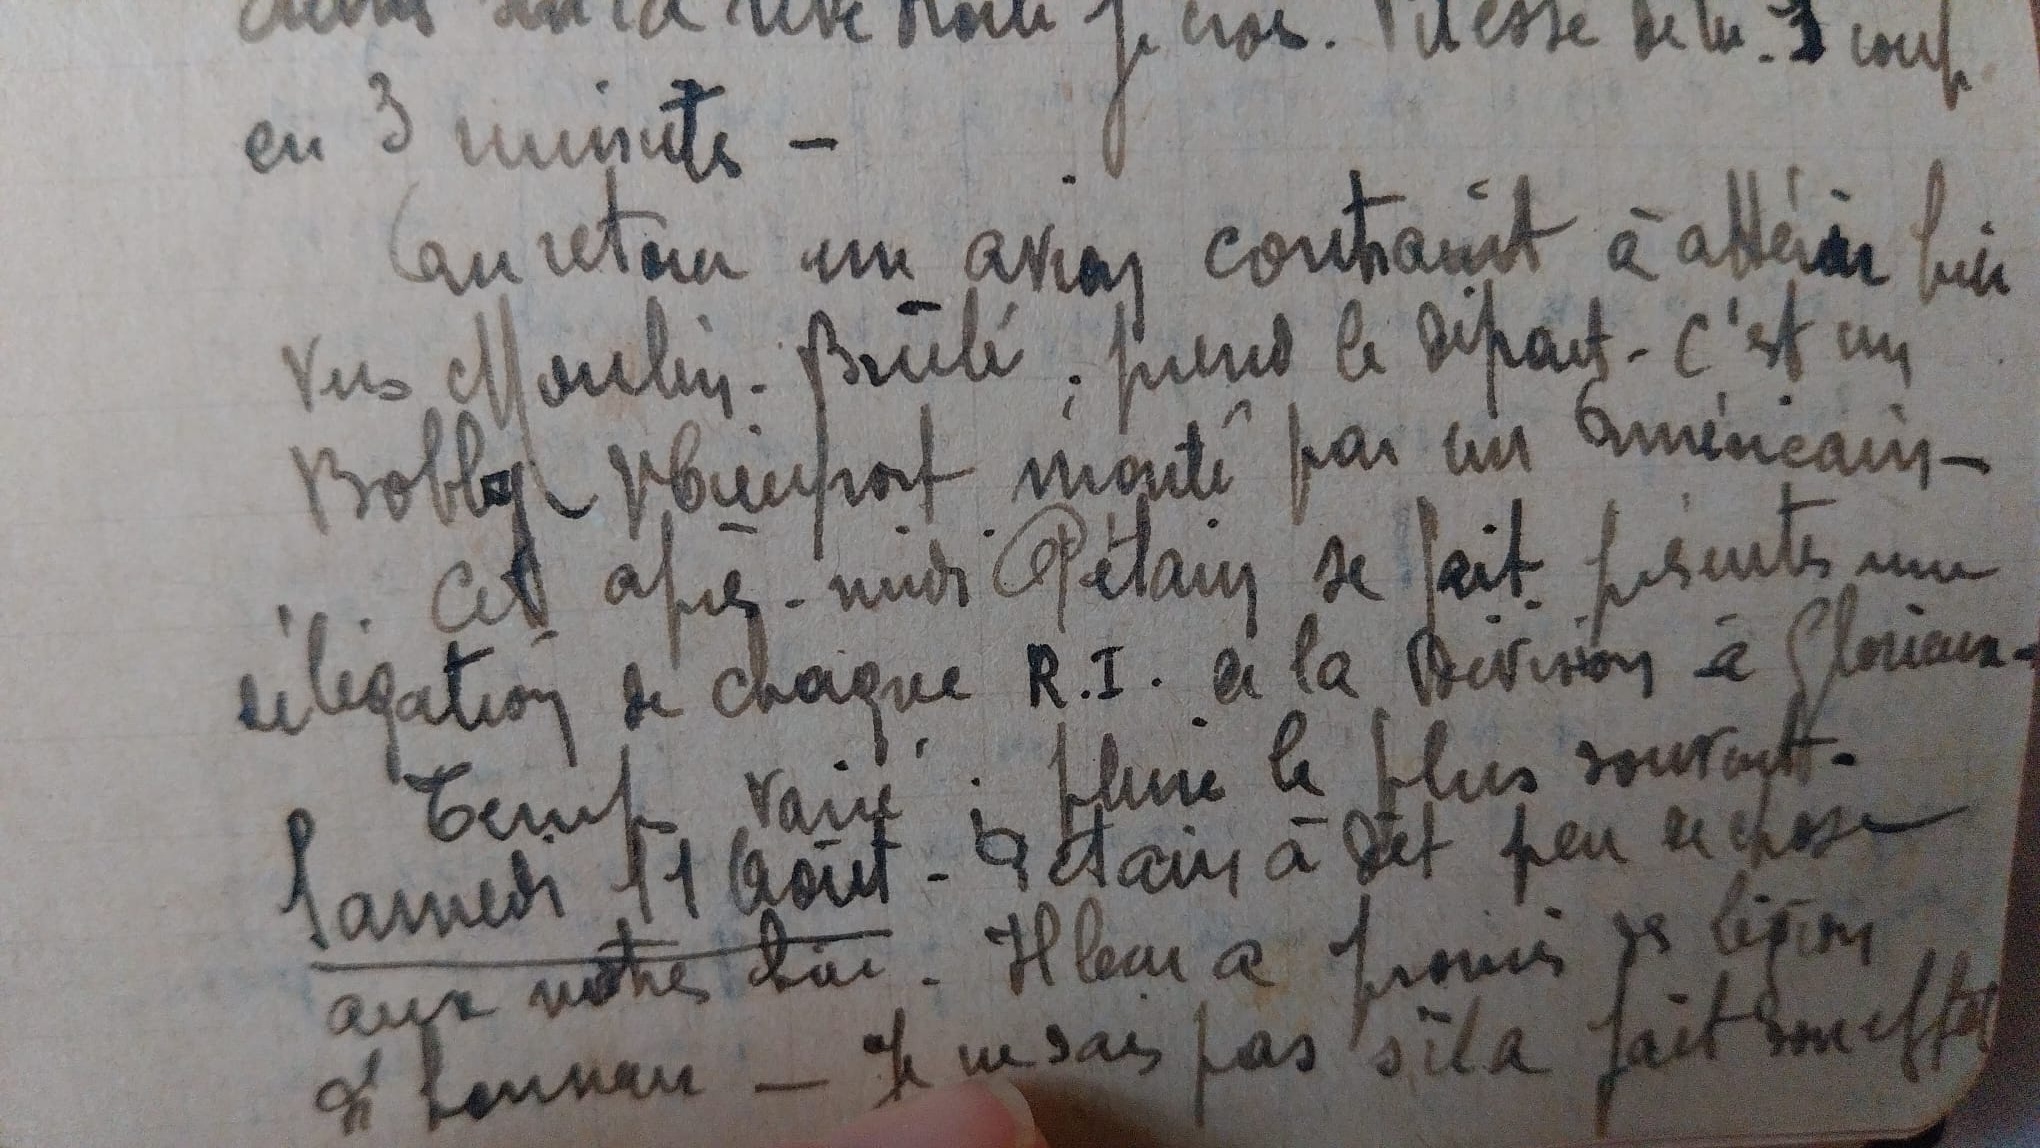 sur la rive droite je crois. Vitesse de tir. 1 coup
en 3 minutes -
Au retour un avion contraint à attérir hier
vers Moulin-Brûlé, prend le départ - C'est un
Bobby Nieuport monté par un Américain -
Cet après-midi Pétain se fait présenter une
délégation de chaque R.I. de la Division à Glorieux -
Temps varié ; pluie le plus souvent -
Samedi 11 Août - Pétain à dit peu de chose
aux notres hier. Il leur a promis des légion
d'honneur - Je ne sais pas s'il a fait son effet